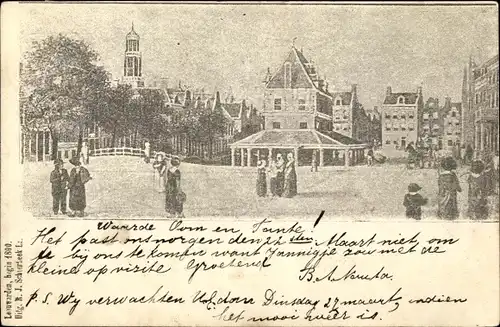 Leeuwarden, begin 1800.
Uitg. R. J. Schierbeek Lz.
Waarde Oom en Tante!
Het past ons morgen den 21sten Maart niet, om
te bij ons te komen want Jannigje zou met de
kleine op visite. Groetend
P.S. Wij verwachten U.L. dan Dinsdag 27 maart, indien
het mooi weer is.